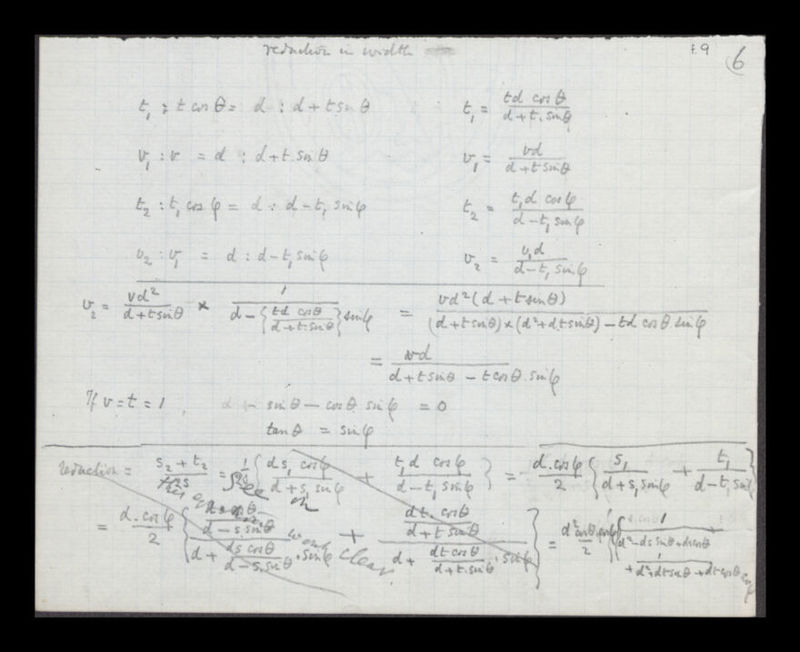 reduction in width
f.9 6
t₁ : t cos θ = d : d + t sin θ    t₁ = td cos θ / (d + t. sin θ)
v₁ : v = d : d + t sin θ    v₁ = vd / (d + t sin θ)
t₂ : t₁ cos φ = d : d − t₁ sin φ    t₂ = t₁d cos φ / (d − t₁ sin φ)
v₂ : v₁ = d : d − t₁ sin φ    v₂ = v₁d / (d − t₁ sin φ)
v₂ = vd² / (d + t sin θ) × 1 / (d − {td cos θ / (d + t. sin θ)} sin φ) = vd² (d + t sin θ) / ((d + t sin θ) × (d² + dt sin θ) − td cos θ sin φ)
= vd / (d + t sin θ − t cos θ. sin φ)
If v = t = 1    sin θ − cos θ sin φ = 0
tan θ = sin φ
reduction = (s₂ + t₂) / 2s = 1/2s {ds₁ cos φ / (d + s₁ sin φ) + t₁d cos φ / (d − t₁ sin φ)} = d. cos φ / 2 {s₁ / (d + s₁ sin φ) + t₁ / (d − t₁ sin φ)}
= d. cos φ / 2 {(ds cos θ / (d − s. sin θ)) / (d + ds cos θ / (d − s. sin θ) . sin φ) + (dt. cos θ / (d + t sin θ)) / (d + dt cos θ / (d + t. sin θ) . sin φ)} = d² cos θ. cos φ / 2 {1 / (d² − ds sin θ + ds cos θ
+ 1 / (d² + dt sin θ + dt cos θ
clear